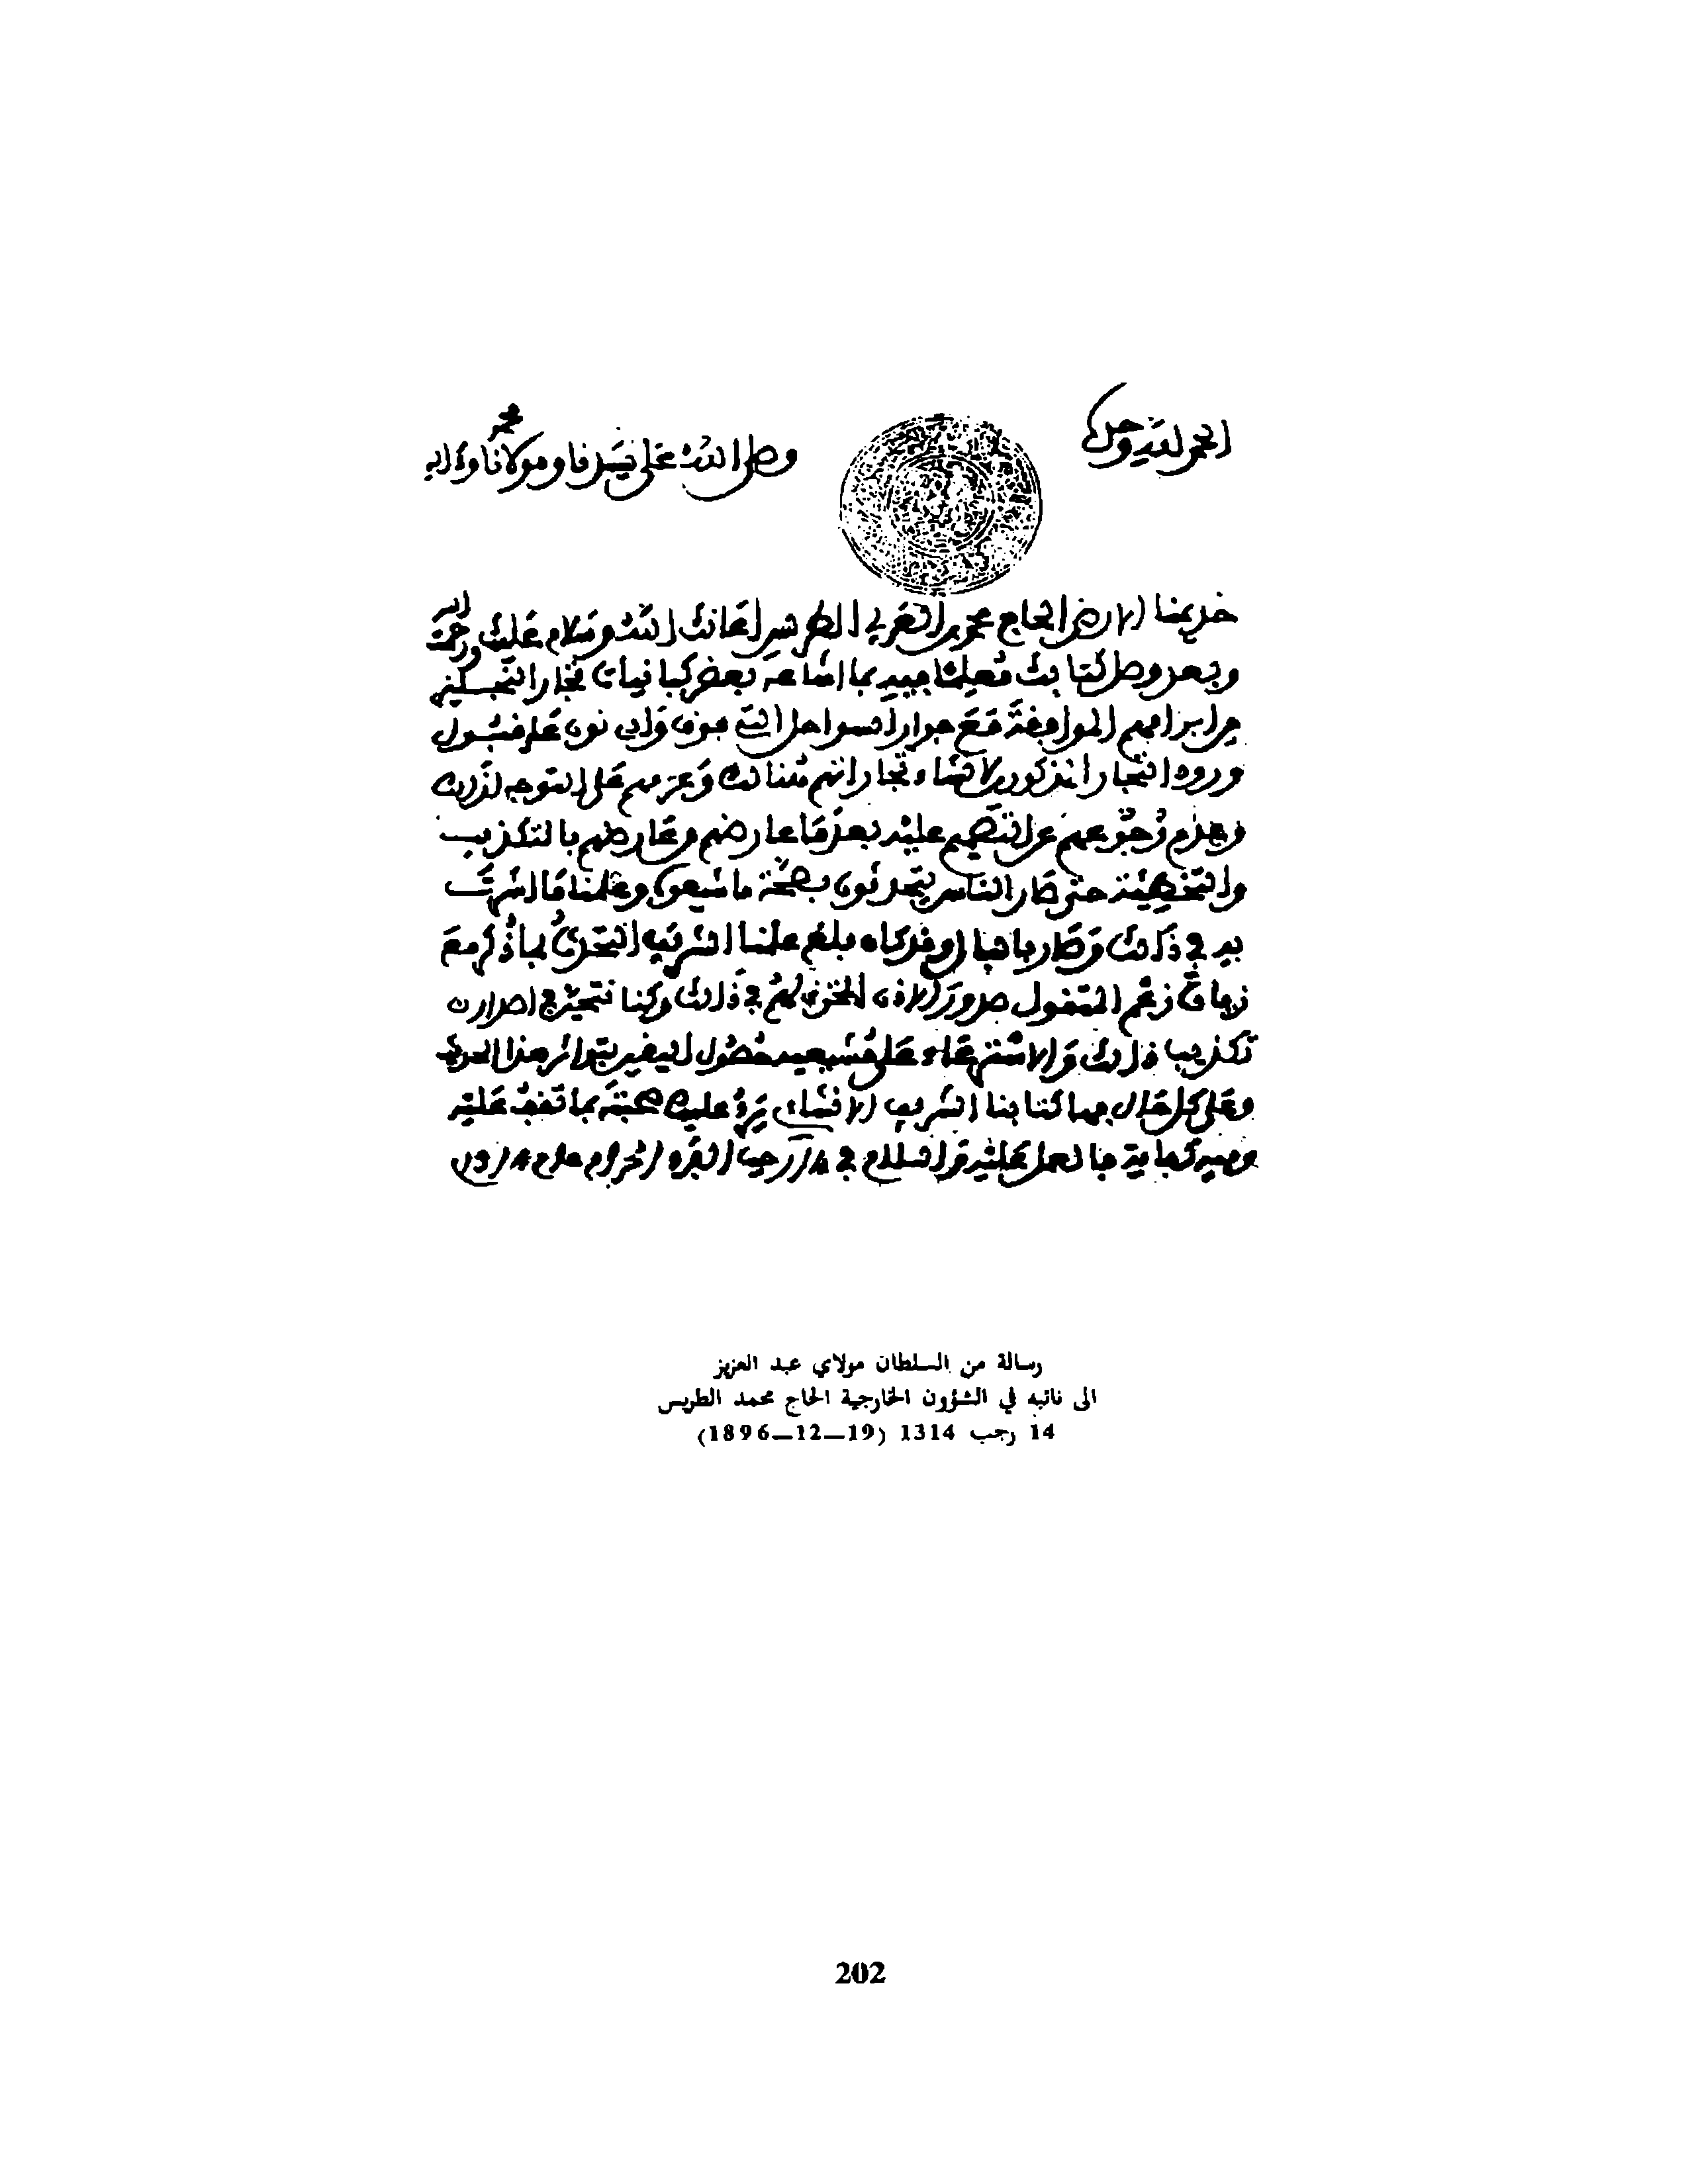 الحمد لله وحده
وصلى الله على سيدنا ومولانا محمد وءاله
خديمنا الارضى الحاج محمد بن العربي الطريس اعانك الله وسلام عليك ورحمة الله
وبعد وصل كتابك معلما فيه بما اشاعه بعض كبانيات تجار النجليز
من ابرامهم الموافقة مع جوار السواحل التي فوق وادي نون على قبول
ورود التجار المذكورين لانشاء تجاراتهم هنالك وعزمهم على التوجه لذلك
وعدم رجوعهم عن التصميم عليه بعدما عارضهم وعارضهم بالتكذيب
والتخطيئة حتى صار الناس يتحدثون بصحة ما شيعوه وعلمنا ما اشرت
به في ذلك وصار بالبال وقد كان بلغ علمنا الشريف التحدث بما ذكر مع
زيادة زعم المتقول صدور الاذن المخزني لهم في ذلك وكنا نتحير في اصدار
تكذيب ذلك والاشتهاد على حصول اليقين بتواتر هذا
وعلى كل حال فها كتابنا الشريف الانشائي يرد عليك صحبته بما تقف عليه
وفيه كفاية فالعمل عليه والسلام في 14 رجب الفرد الحرام عام 1314
رسالة من السلطان مولاي عبد العزيز
الى نائبه في الشؤون الخارجية الحاج محمد الطريس
14 رجب 1314 (19–12–1896)
202